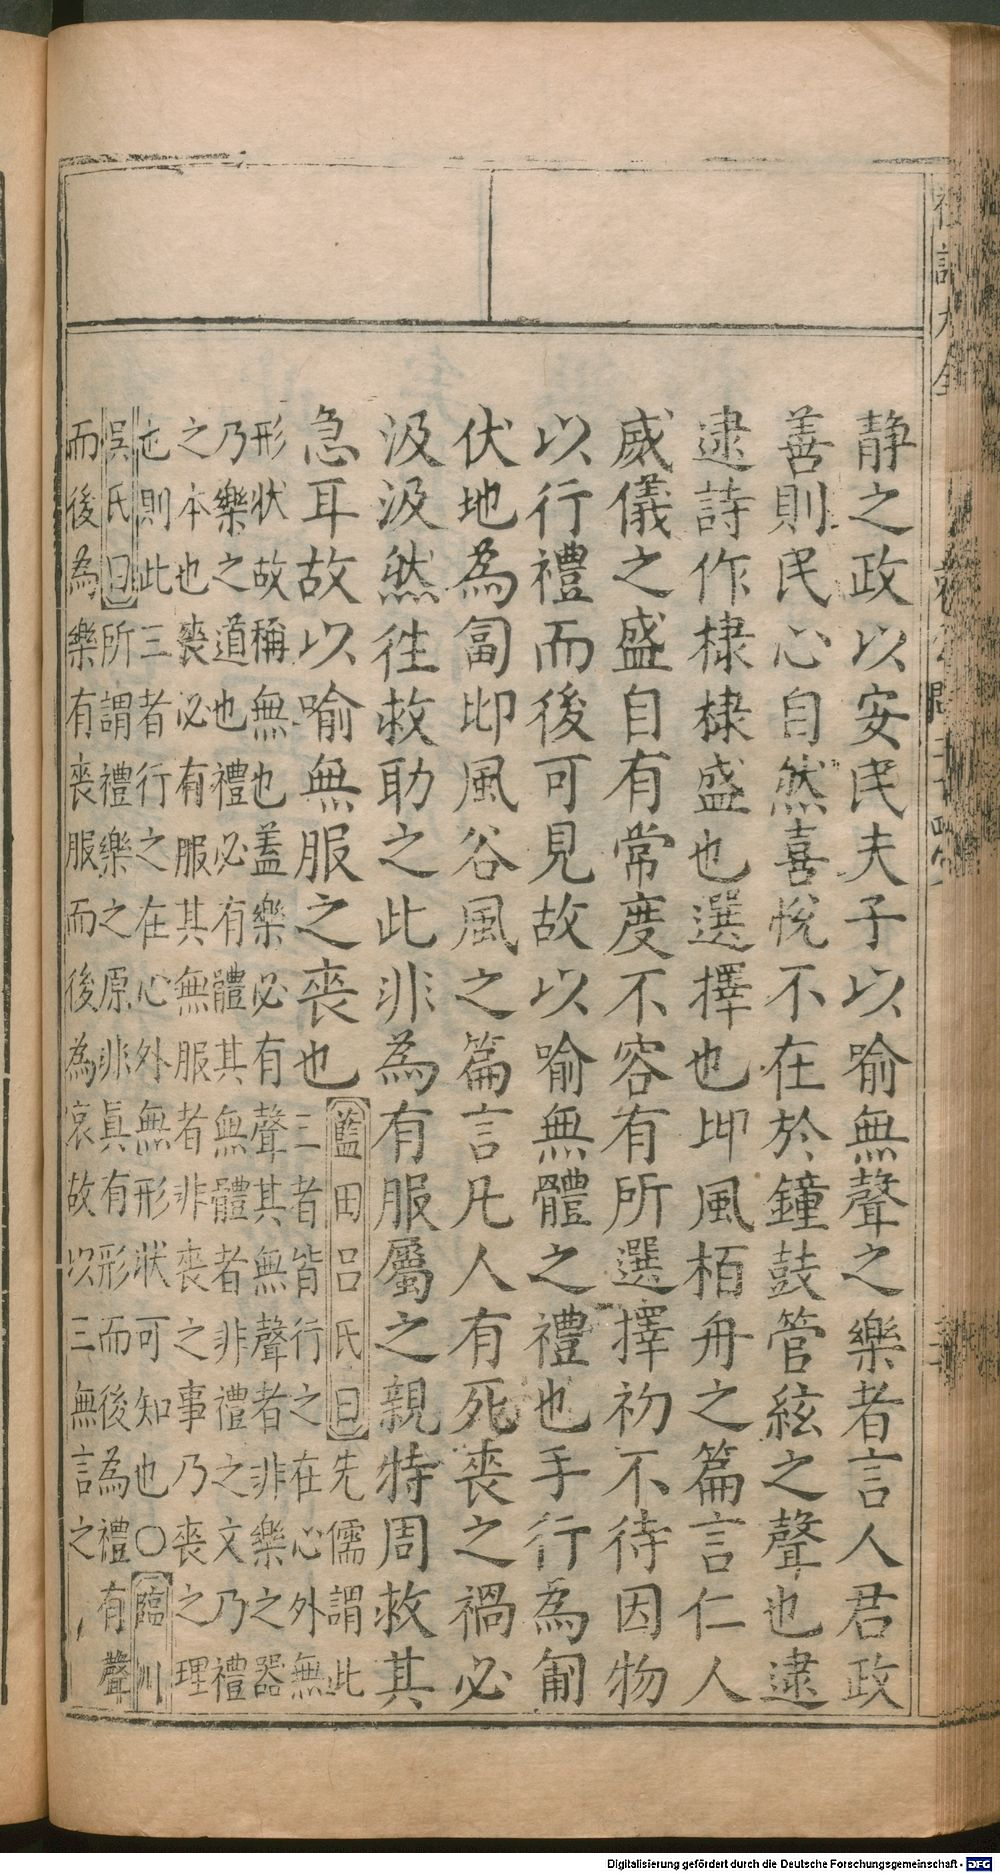 禮記大全
静之政以安民夫子以喻無聲之樂者言人君政
善則民心自然喜悅不在於鐘鼓管絃之聲也逮
逮詩作棣棣盛也選擇也邶風栢舟之篇言仁人
威儀之盛自有常度不容有所選擇初不待因物
以行禮而後可見故以喻無體之禮也手行為匍
伏地為匐邶風谷風之篇言凡人有死喪之禍必
汲汲然徃救助之此非為有服屬之親特周救其
急耳故以喻無服之喪也
藍田呂氏曰先儒謂此
三者皆行之在心外無
形狀故稱無也蓋樂必有聲其無聲者非樂之器
乃樂之道也禮必有體其無體者非禮之文乃禮
之本也喪必有服其無服者非喪之事乃喪之理
也則此三者行之在心外無形狀可知也〇臨川
吳氏曰所謂禮樂之原非真有形而後為禮有聲
而後為樂有喪服而後為哀故以三無言之
Digitalisierung gefördert durch die Deutsche Forschungsgemeinschaft - DFG